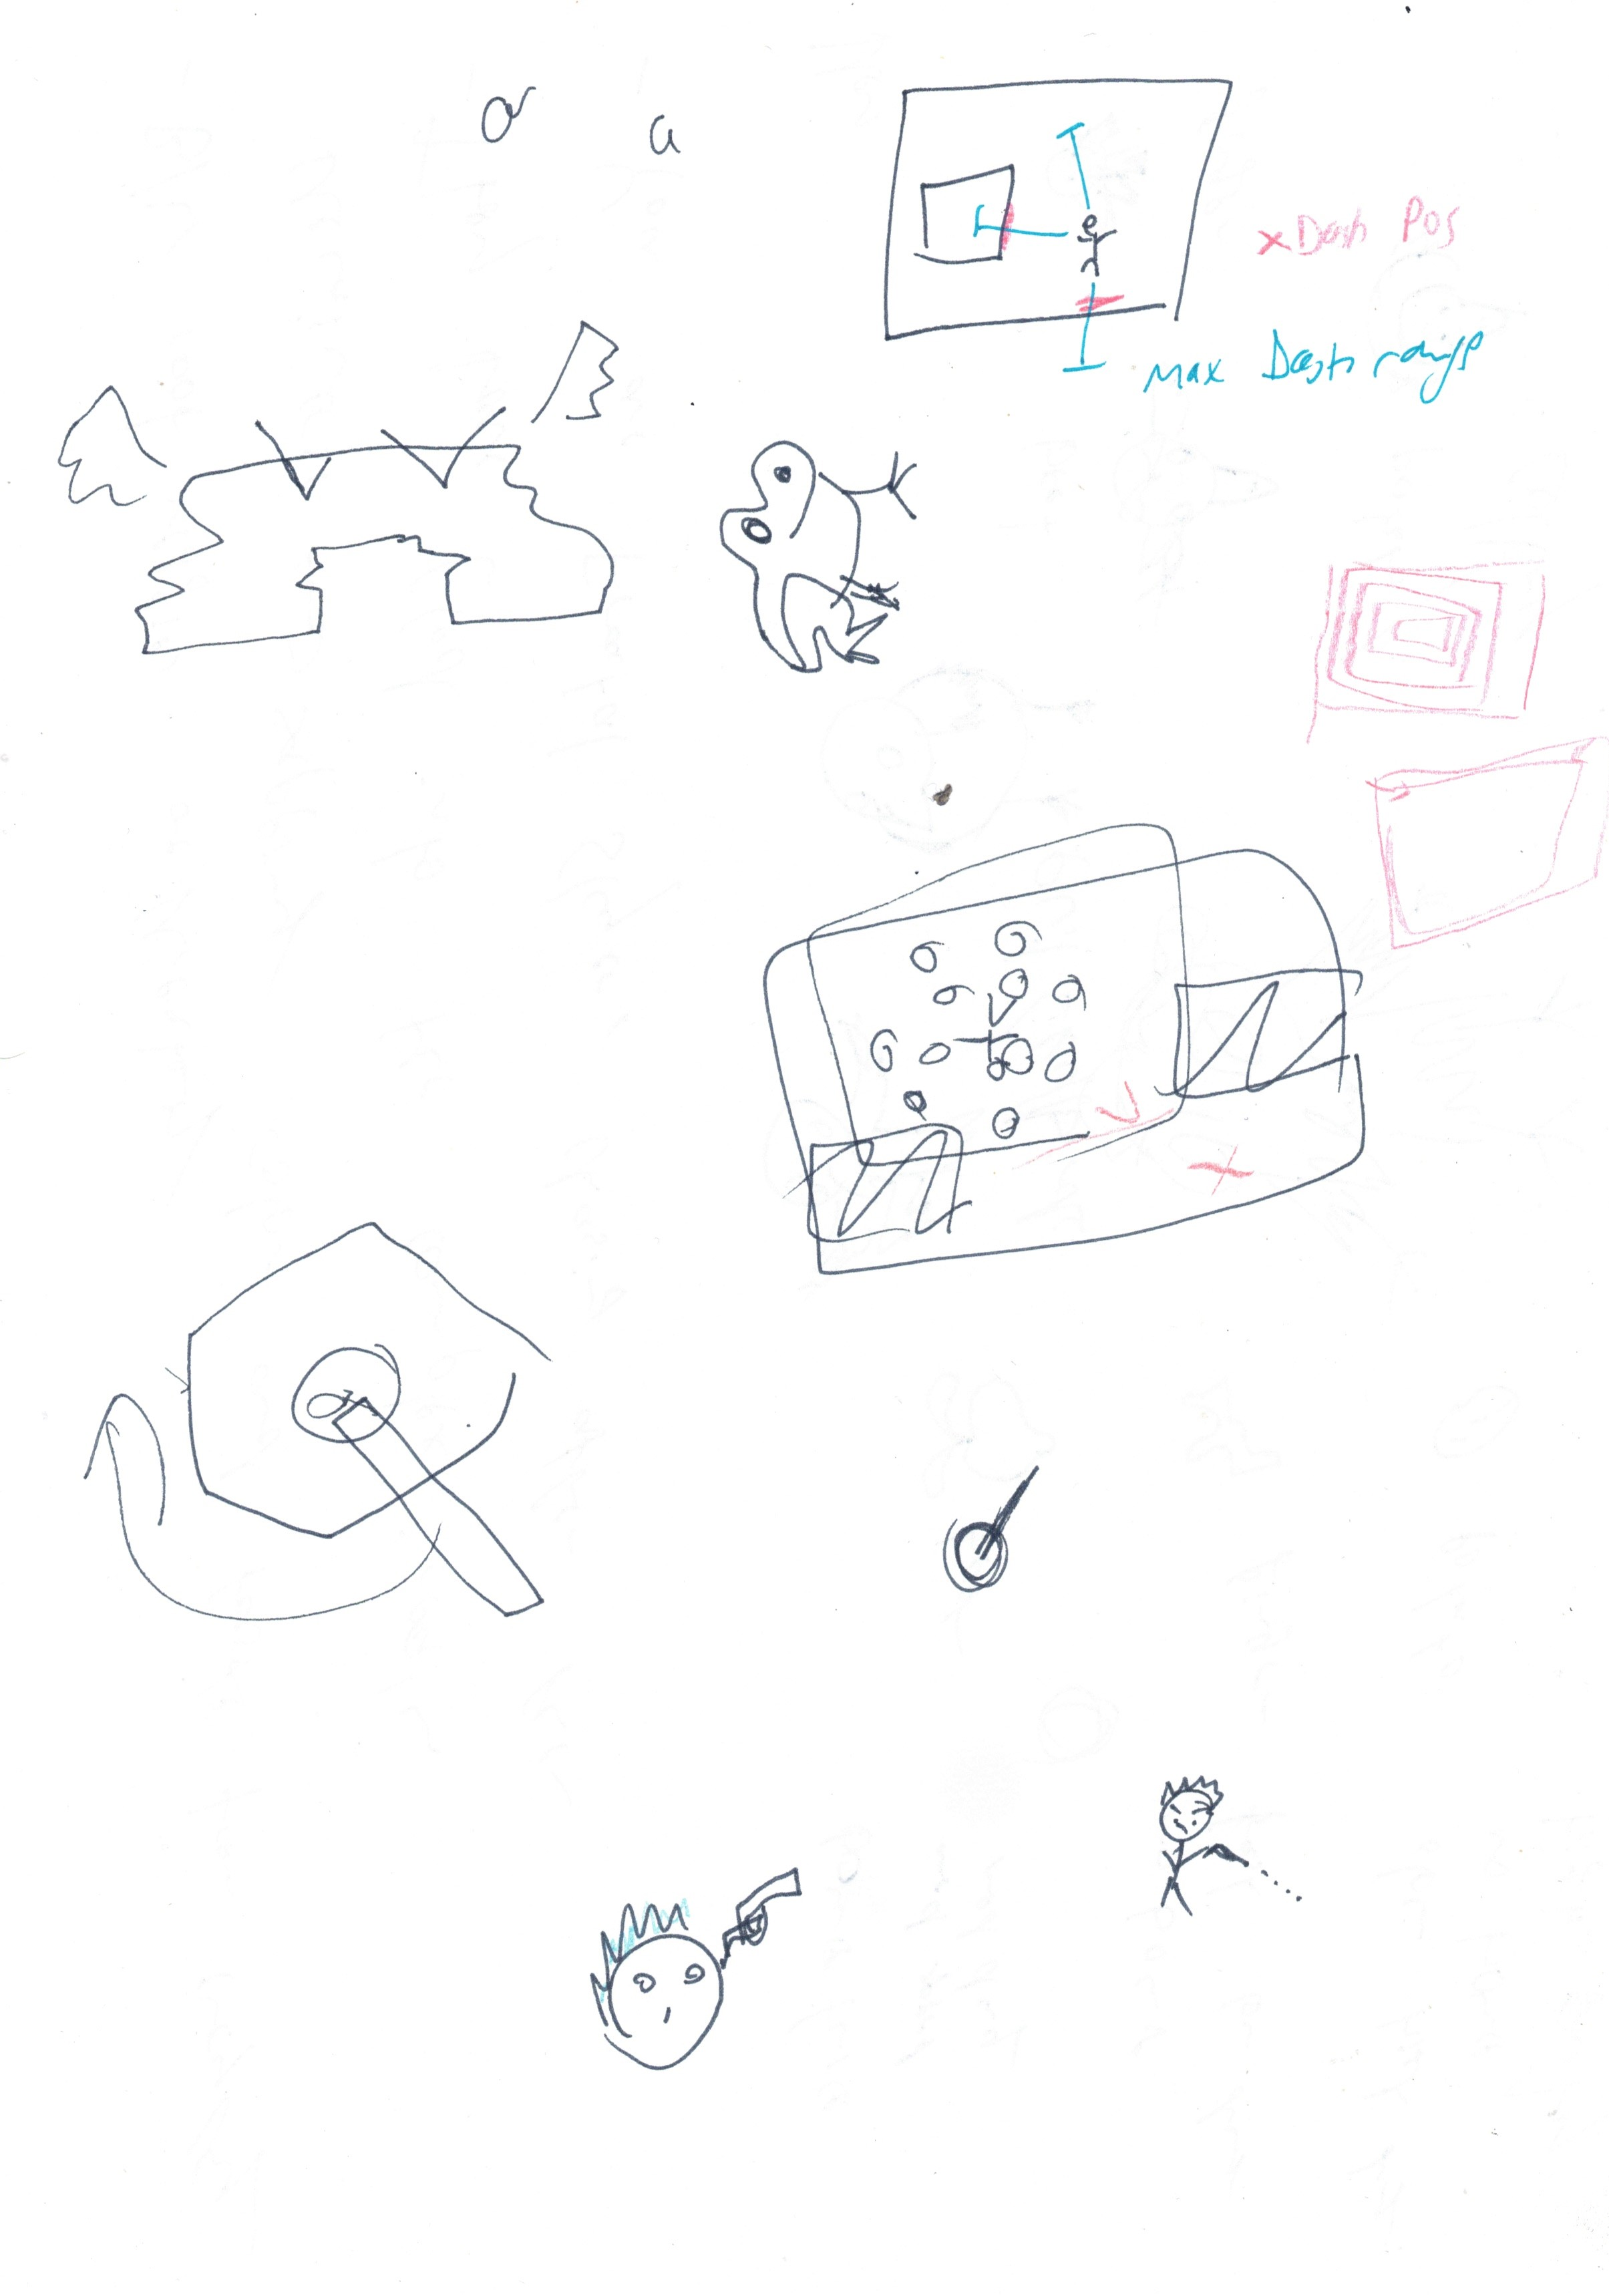 a
x Dash Pos
Max Dash range